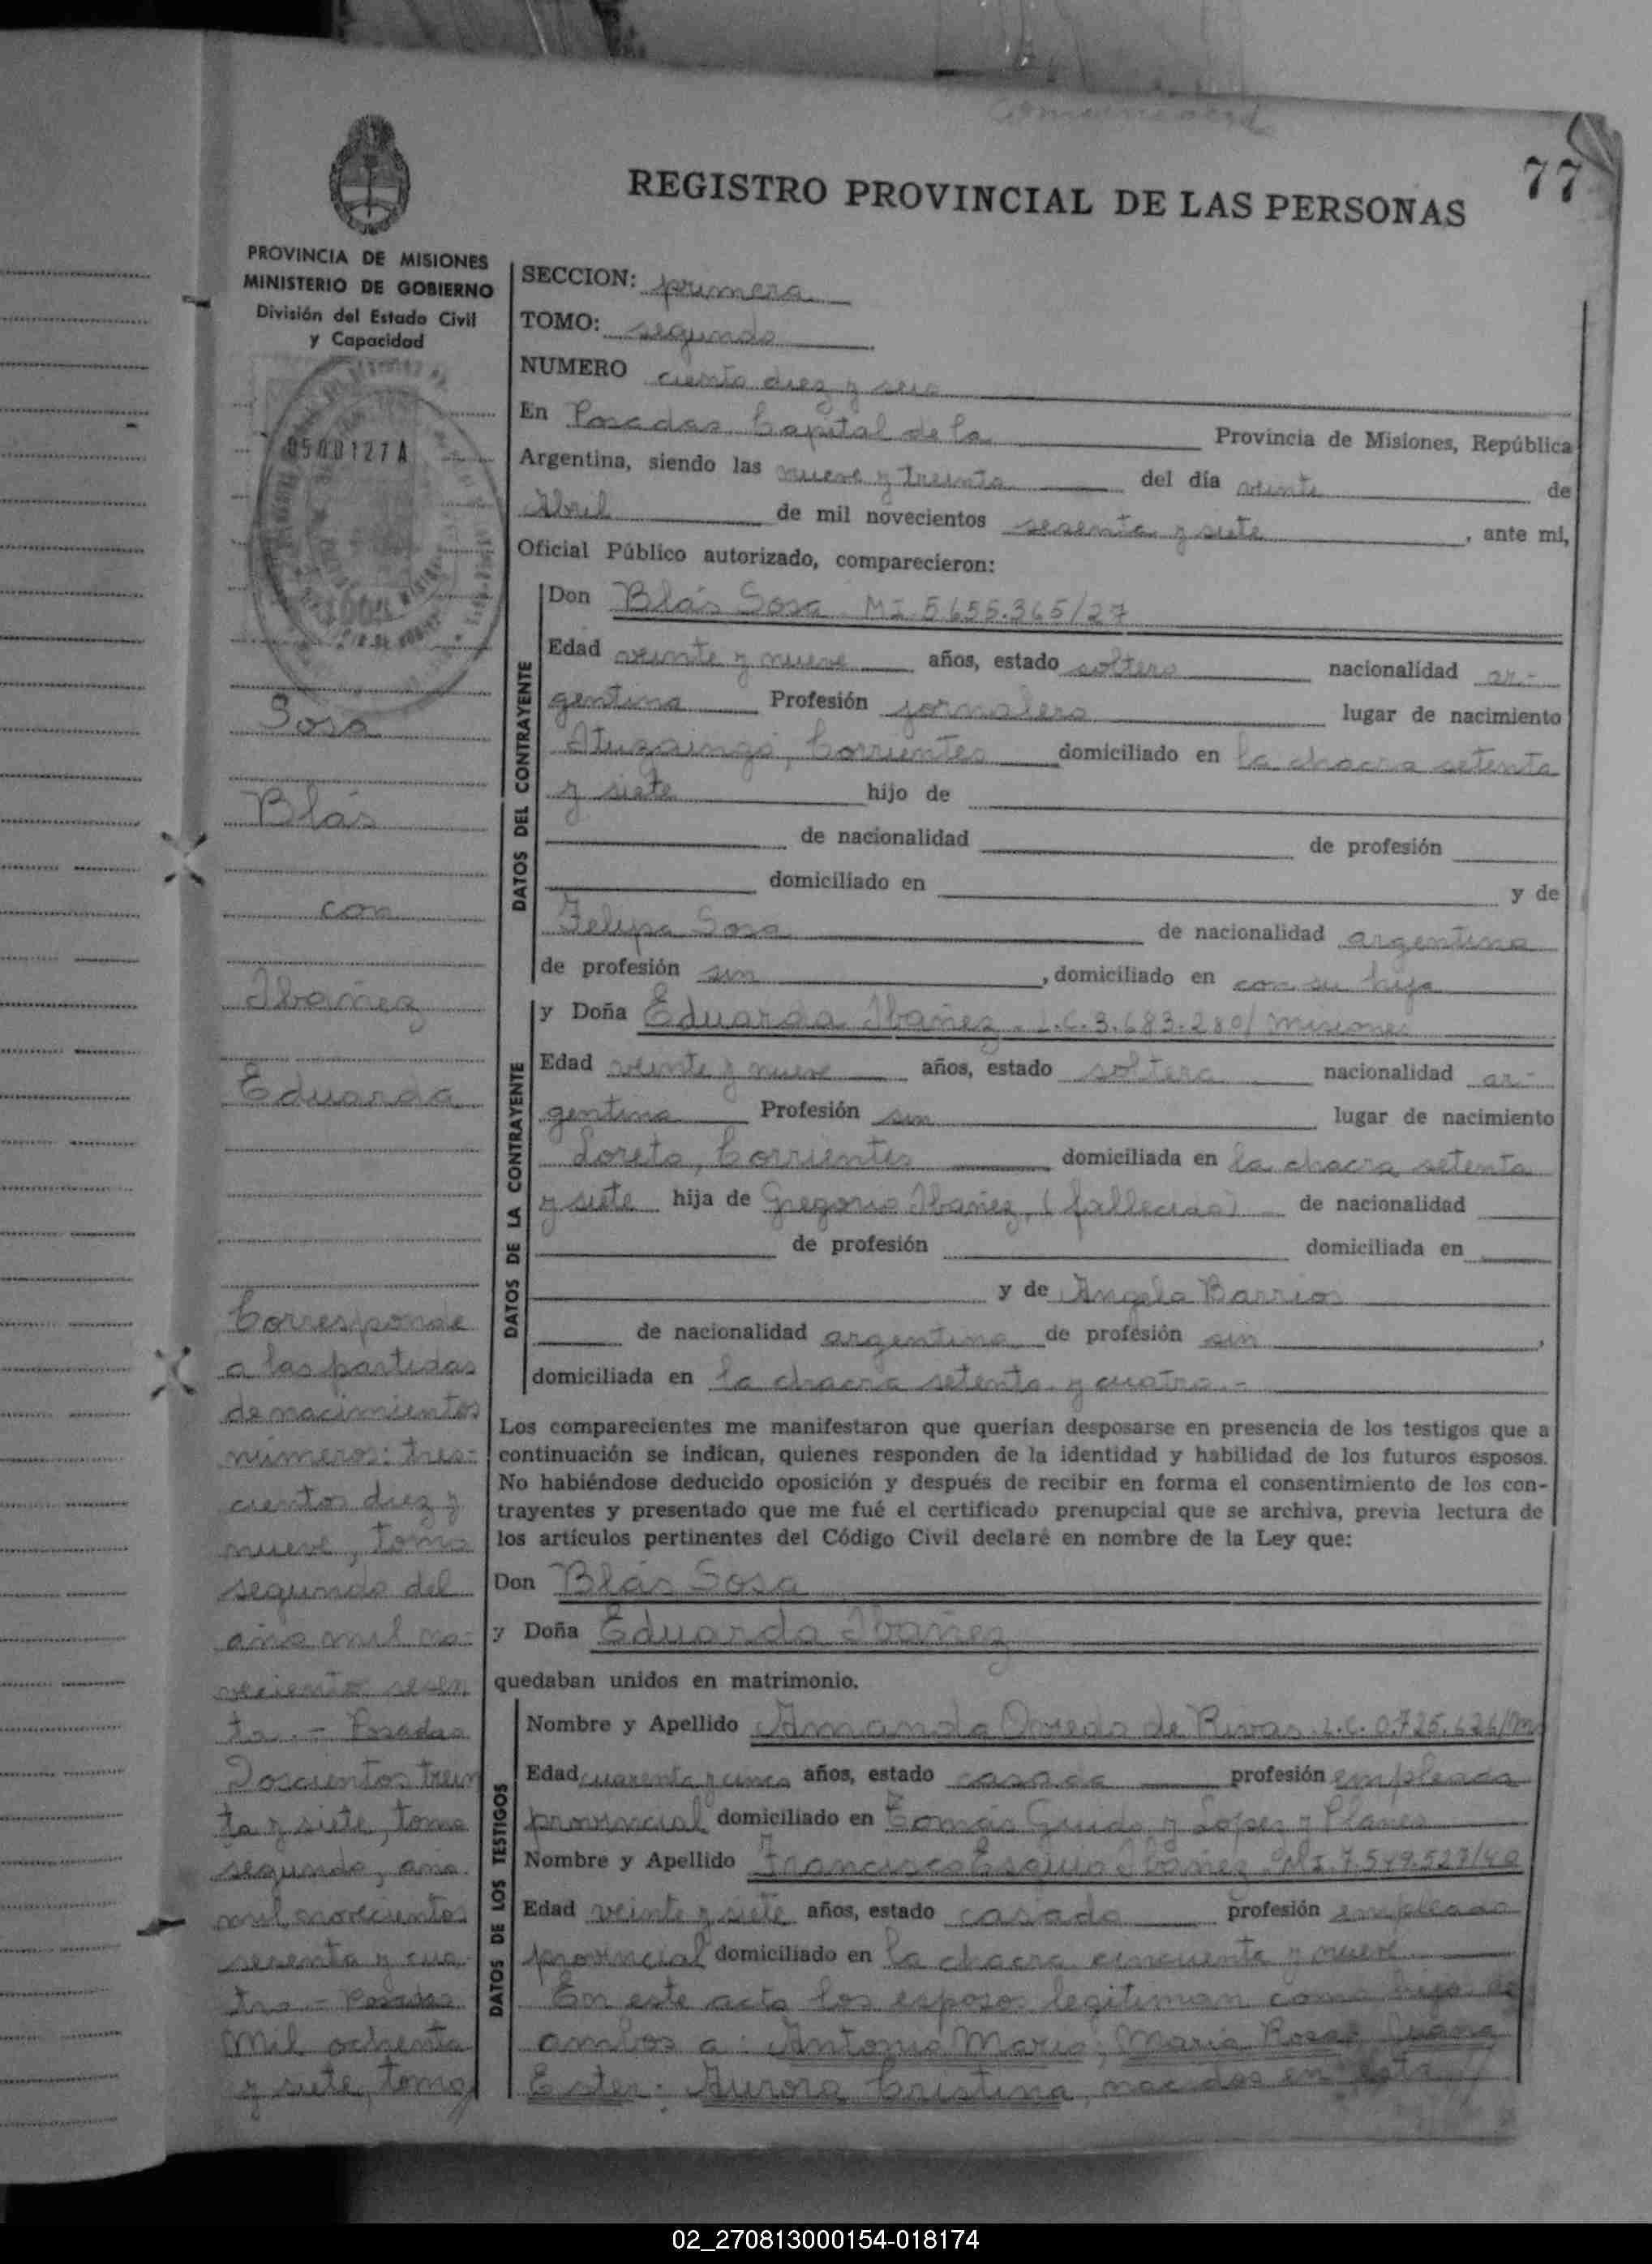 77
REGISTRO PROVINCIAL DE LAS PERSONAS
PROVINCIA DE MISIONES
MINISTERIO DE GOBIERNO
División del Estado Civil
y Capacidad
0500127A
Sosa
Blás
con
Ibañez
Eduarda
Corresponde
a las partidas
de nacimientos
números: tres-
cientos diez y
nueve, tomo
segundo del
año mil no-
veciento sesen
ta.- Posadas
Doscientos trein
ta y siete, tomo
segundo, año
mil novecientos
sesenta y cua-
tro - Posadas
Mil ochenta
y siete, tomo
SECCION: primera
TOMO: segundo
NUMERO ciento diez y seis
En Posadas Capital de la Provincia de Misiones, República
Argentina, siendo las nueve y treinta del día veinte de
Abril de mil novecientos sesenta y siete, ante mi,
Oficial Público autorizado, comparecieron:
DATOS DEL CONTRAYENTE
Don Blás Sosa MI 5.655.365/27
Edad veinte y nueve años, estado soltero nacionalidad ar-
gentina Profesión jornalero lugar de nacimiento
Ituzaingó, Corrientes domiciliado en la chacra setenta
y siete hijo de
de nacionalidad de profesión
domiciliado en y de
Felipa Sosa de nacionalidad argentina
de profesión sin, domiciliado en con su hijo
DATOS DE LA CONTRAYENTE
y Doña Eduarda Ibañez. L.C. 3.683.280/ Misiones
Edad veinte y nueve años, estado soltera nacionalidad ar-
gentina Profesión sin lugar de nacimiento
Loreto, Corrientes domiciliada en la chacra setenta
y siete hija de Gregorio Ibañez, (fallecido) de nacionalidad
de profesión domiciliada en
y de Angela Barrios
de nacionalidad argentina de profesión sin,
domiciliada en la chacra setenta y cuatro.-
Los comparecientes me manifestaron que querían desposarse en presencia de los testigos que a
continuación se indican, quienes responden de la identidad y habilidad de los futuros esposos.
No habiéndose deducido oposición y después de recibir en forma el consentimiento de los con-
trayentes y presentado que me fué el certificado prenupcial que se archiva, previa lectura de
los artículos pertinentes del Código Civil declaré en nombre de la Ley que:
Don Blás Sosa
y Doña Eduarda Ibañez
quedaban unidos en matrimonio.
DATOS DE LOS TESTIGOS
Nombre y Apellido Amanda Oviedo de Rivas L.C. 0.725.626/M
Edad cuarenta y cinco años, estado casada profesión empleada
provincial domiciliado en Tomás Guido y López y Planes
Nombre y Apellido Francisco Ibañez MI 7.549.527/40
Edad veinte y siete años, estado casado profesión empleado
provincial domiciliado en la chacra cincuenta y nueve
En este acto los esposo legitiman como hijos de
ambos a: Antonio Mario; Maria Rosa; Juana
Ester; Aurora Cristina, nacidos en esta
02_270813000154-018174